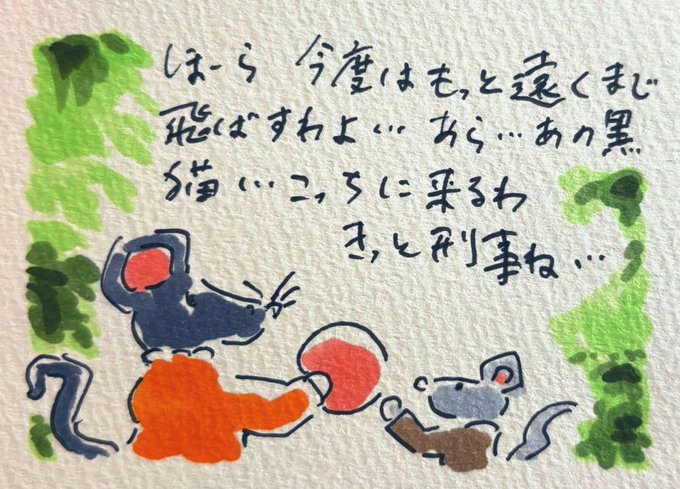 ほーら 今度はもっと遠くまで
飛ばすわよ… あら…あの黒
猫…こっちに来るわ
きっと刑事ね…